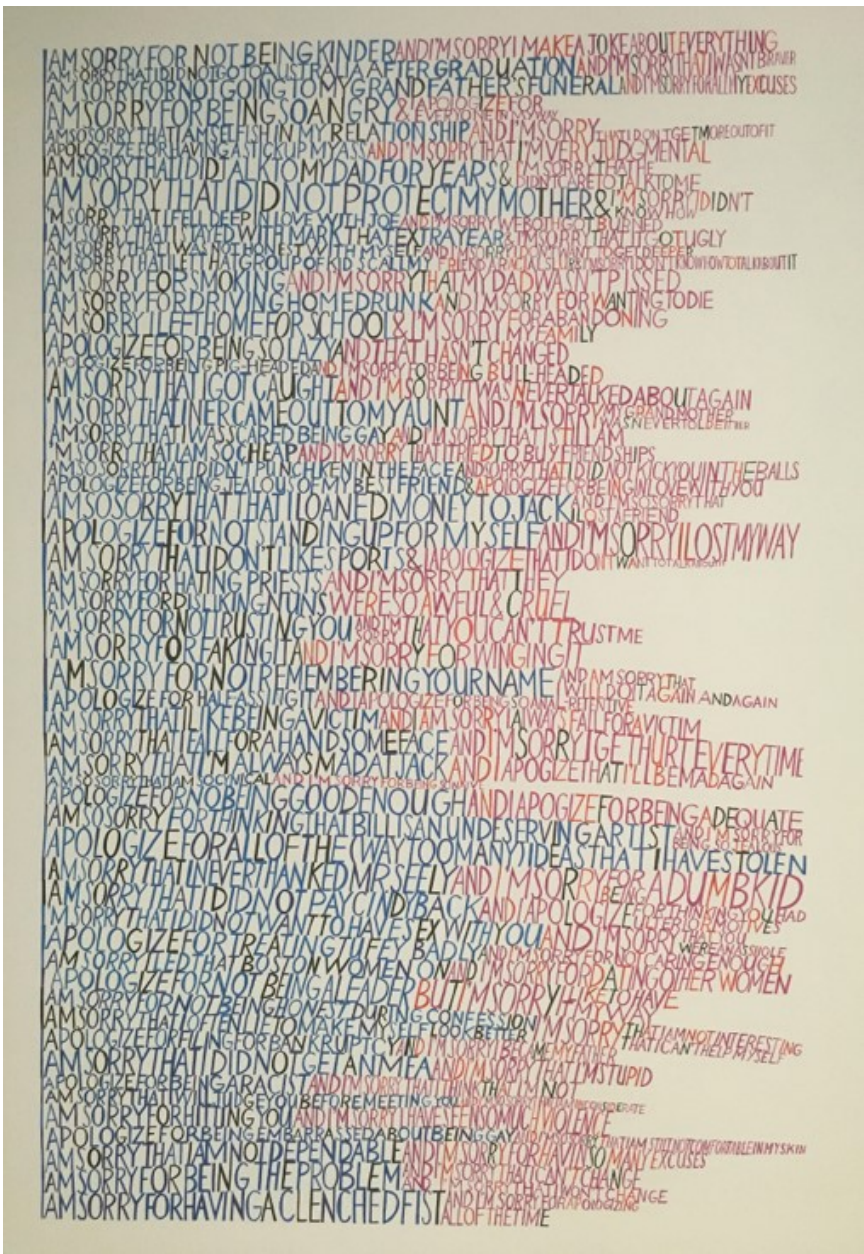 I AM SORRY FOR NOT BEING KINDER AND I'M SORRY I MAKE A JOKE ABOUT EVERYTHING
I AM SORRY THAT I DID NOT GO TO AUSTRALIA AFTER GRADUATION AND I'M SORRY THAT I WASN'T BRAVER
I AM SORRY FOR NOT GOING TO MY GRANDFATHER'S FUNERAL AND I'M SORRY FOR ALL MY EXCUSES
I AM SORRY FOR BEING SO ANGRY & I APOLOGIZE FOR & EVERYONE IN MY WAY
I AM SO SORRY THAT I AM SELFISH IN MY RELATIONSHIP AND I'M SORRY THAT I DON'T GET MORE OUT OF IT
I APOLOGIZE FOR HAVING A STICK UP MY ASS AND I'M SORRY THAT I'M VERY JUDGMENTAL
I AM SORRY THAT I DID TALK TO MY DAD FOR YEARS & I'M SORRY THAT HE DIDN'T CARE TO TALK TO ME
I AM SORRY THAT I DID NOT PROTECT MY MOTHER & I'M SORRY I DIDN'T KNOW HOW
I'M SORRY THAT I FELL DEEP IN LOVE WITH JOE AND I'M SORRY WE BOTH GOT BURNED
I AM SORRY THAT I STAYED WITH MARK THAT EXTRA YEAR & I'M SORRY THAT IT GOT UGLY
I AM SORRY THAT I WAS NOT HONEST WITH MYSELF AND I'M SORRY I DIDN'T DEEPER
I AM SORRY THAT I LET THAT GROUP OF KIDS CALL MY FRIEND A RACIAL SLUR I'M SORRY I DON'T KNOW HOW TO TALK ABOUT IT
I AM SORRY FOR SMOKING AND I'M SORRY THAT MY DAD WASN'T PISSED
I AM SORRY FOR DRIVING HOME DRUNK AND I'M SORRY FOR WANTING TO DIE
I AM SORRY I LEFT HOME FOR SCHOOL & I'M SORRY FOR ABANDONING MY FAMILY
I APOLOGIZE FOR BEING SO LAZY AND THAT HASN'T CHANGED
I APOLOGIZE FOR BEING PIG-HEADED AND I'M SORRY FOR BEING BULL-HEADED
I AM SORRY THAT I GOT CAUGHT AND I'M SORRY IT WAS NEVER TALKED ABOUT AGAIN
I'M SORRY THAT I NER CAME OUT TO MY AUNT AND I'M SORRY MY GRANDMOTHER WAS NEVER TOLD EITHER
I AM SORRY THAT I WAS SCARED BEING GAY AND I'M SORRY THAT I STILL AM
I'M SORRY THAT I AM SO CHEAP AND I'M SORRY THAT I TRIED TO BUY FRIENDSHIPS
I AM SO SORRY THAT I DIDN'T PUNCH KEN IN THE FACE AND SORRY THAT I DID NOT KICK YOU IN THE BALLS
I APOLOGIZE FOR BEING JEALOUS OF MY BEST FRIEND & I APOLOGIZE FOR BEING IN LOVE WITH YOU
I AM SO SORRY THAT THAT I LOANED MONEY TO JACK AND I'M SO SORRY THAT I LOST A FRIEND
I APOLOGIZE FOR NOT STANDING UP FOR MYSELF AND I'M SORRY I LOST MY WAY
I AM SORRY THAT I DON'T LIKE SPORTS & I APOLOGIZE THAT I DON'T WANT TO TALK ABOUT IT
I AM SORRY FOR HATING PRIESTS AND I'M SORRY THAT THEY
I AM SORRY FOR DISLIKING NUNS WERE SO AWFUL & CRUEL
I'M SORRY FOR NOT TRUSTING YOU AND I'M SORRY THAT YOU CAN'T TRUST ME
I AM SORRY FOR FAKING IT AND I'M SORRY FOR WINGING IT
I AM SORRY FOR NOT REMEMBERING YOUR NAME AND AM SORRY THAT I WILL DO IT AGAIN AND AGAIN
I APOLOGIZE FOR HALF ASSING IT AND I APOLOGIZE FOR BEING SO ANAL-RETENTIVE
I AM SORRY THAT I LIKE BEING A VICTIM AND I AM SORRY I ALWAYS FAIL FOR A VICTIM
I AM SORRY THAT I FALL FOR A HANDSOME FACE AND I'M SORRY I GET HURT EVERY TIME
I AM SORRY THAT I'M ALWAYS MAD AT JACK AND I APOGIZE THAT I'LL BE MAD AGAIN
I AM SO SORRY THAT I AM SO CYNICAL AND I'M SORRY FOR BEING SO NAIVE
I APOLOGIZE FOR NO BEING GOOD ENOUGH AND I APOGIZE FOR BEING ADEQUATE
I AM SO SORRY FOR THINKING THAT BILL IS AN UNDESERVING ARTIST AND I'M SORRY FOR BEING SO JEALOUS
I APOLOGIZE FOR ALL OF THE (WAY TOO MANY) IDEAS THAT I HAVE STOLEN
I AM SORRY THAT I NEVER THANKED MR SEELY AND I'M SORRY FOR BEING A DUMB KID
I AM SORRY THAT I DID NOT PAY CINDY BACK AND I APOLOGIZE FOR THINKING YOU HAD ULTERIOR MOTIVES
I'M SORRY THAT I DID NOT WANT TO HAVE SEX WITH YOU AND I'M SORRY THAT WERE AN ASSHOLE
I APOLOGIZE FOR TREATING TUFFY BADLY AND I'M SORRY FOR NOT CARING ENOUGH
I AM SORRY I LED THAT BOSTON WOMEN ON AND I'M SORRY FOR DATING OTHER WOMEN
I APOLOGIZE FOR NOT BEING A LEADER BUT I'M SORRY I LIKE TO HAVE MY WAY
I AM SORRY FOR NOT BEING HONEST DURING CONFESSION I'M SORRY THAT I AM NOT INTERESTING
I AM SORRY THAT I OFTEN LIE TO MAKE MYSELF LOOK BETTER THAT I CAN'T HELP MYSELF
I APOLOGIZE FOR FILING FOR BANKRUPTCY AND I'M SORRY I BECAME MY FATHER
I AM SORRY THAT I DID NOT GET AN MFA AND I'M SORRY THAT I'M STUPID
I APOLOGIZE FOR BEING A RACIST AND I'M SORRY THAT I THINK THAT I'M NOT
I AM SORRY THAT I WILL JUDGE YOU BEFORE MEETING YOU
I AM SORRY FOR HITTING YOU AND I'M SORRY I HAVE SEEN SO MUCH VIOLENCE
I APOLOGIZE FOR BEING EMBARRASSED ABOUT BEING GAY AND I'M SORRY THAT I AM STILL NOT COMFORTABLE IN MY SKIN
I AM SORRY THAT I AM NOT DEPENDABLE AND I'M SORRY FOR HAVIN SO MANY EXCUSES
I AM SORRY FOR BEING THE PROBLEM AND I'M SORRY THAT I CAN'T CHANGE
AND I'M SORRY THAT I WON'T CHANGE
I AM SORRY FOR HAVING A CLENCHED FIST AND I'M SORRY FOR APOLOGIZING ALL OF THE TIME